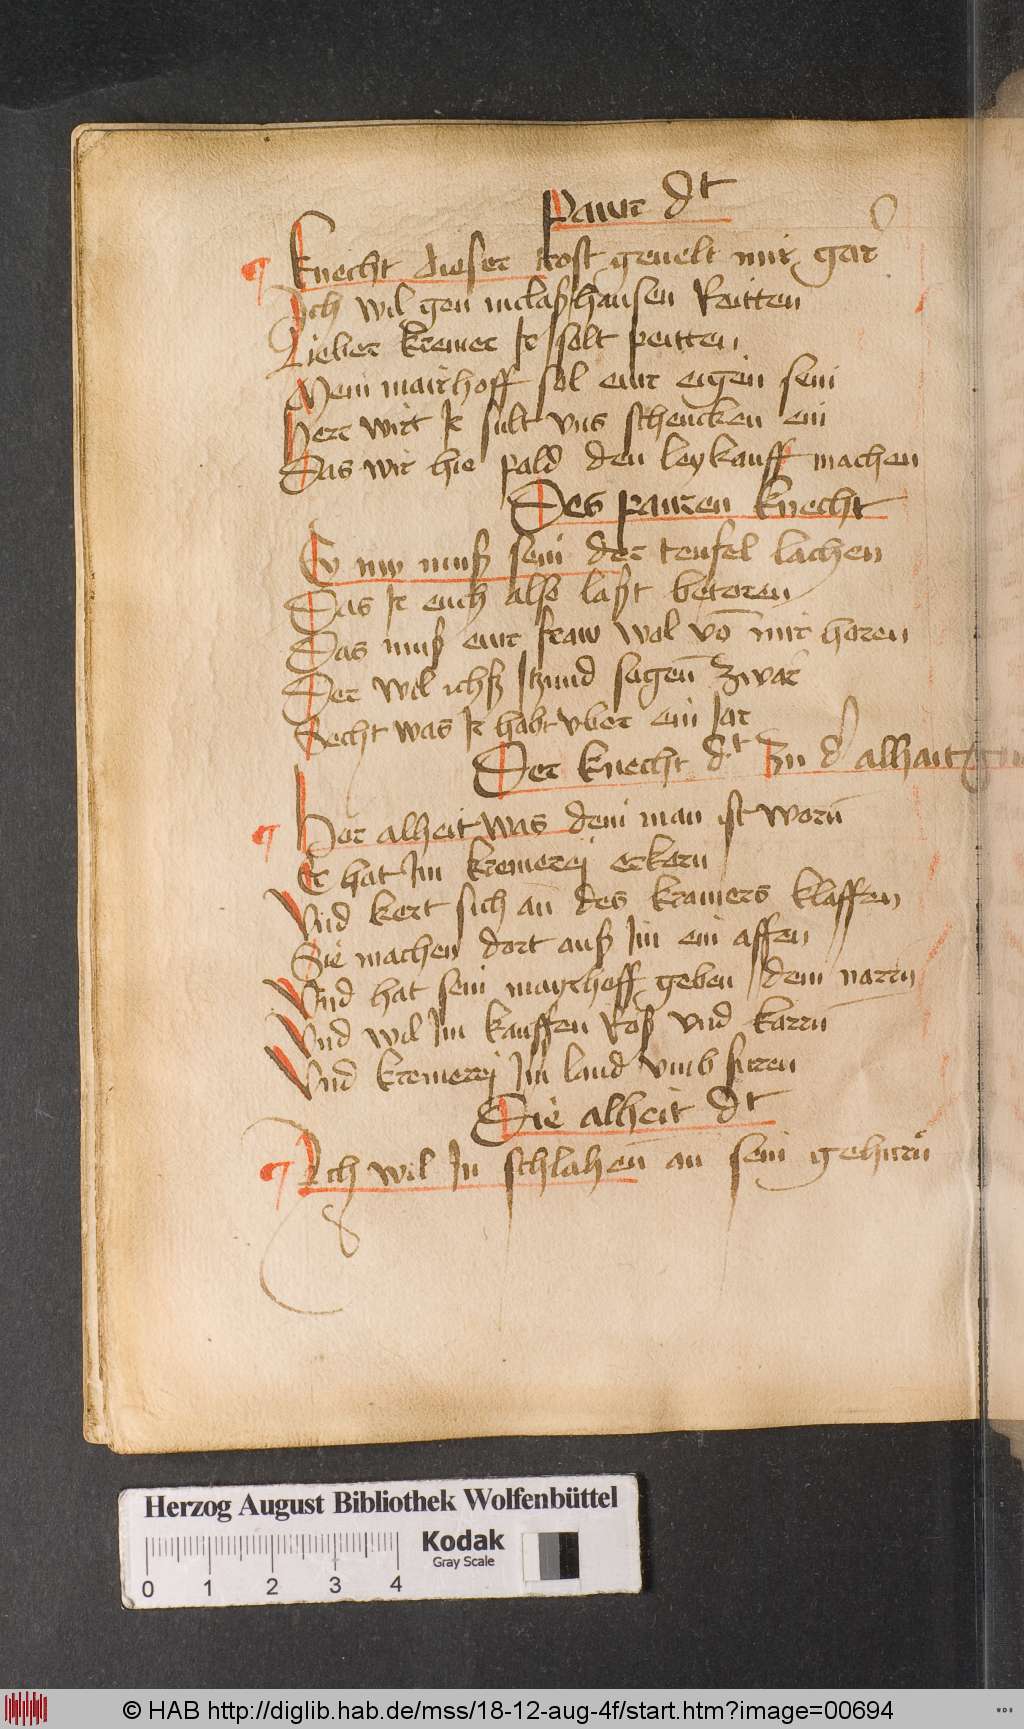 Pawr dt
Knecht dieser trost geuelt mir gar
Ich wil gen niclaßhausen Reitten
Lieber kremer Ir solt peitten
Mein mairhoff sol ewr eigen sein
Herr wirt Ir sult vns schencken ein
Das wir hie pald den leykauff machen
Des pauren knecht
Ey nw muß sein der teufel lachen
Das Ir euch also laßt betoren
Das muß ewr fraw wol vō mir horen
Der wil ichß Itzund sagen zwar
Secht was Ir habt vber ein Jar
Der knecht dt zu d alhait
Hor alheit was dem man ist worn
Er hat Im kremerej erkorn
Vnd kert sich an des kramers klaffen
Sie machen dort auß Im ein affen
Vnd hat sein mayrhoff geben dem narrn
Vnd wil Im kauffen Roß vnd karrn
Vnd kremerej Im land vmb furen
Die alheit dt
Ich wil In schlahen an sein gehirrn
Herzog August Bibliothek Wolfenbüttel
Kodak
Gray Scale
0 1 2 3 4
© HAB http://diglib.hab.de/mss/18-12-aug-4f/start.htm?image=00694